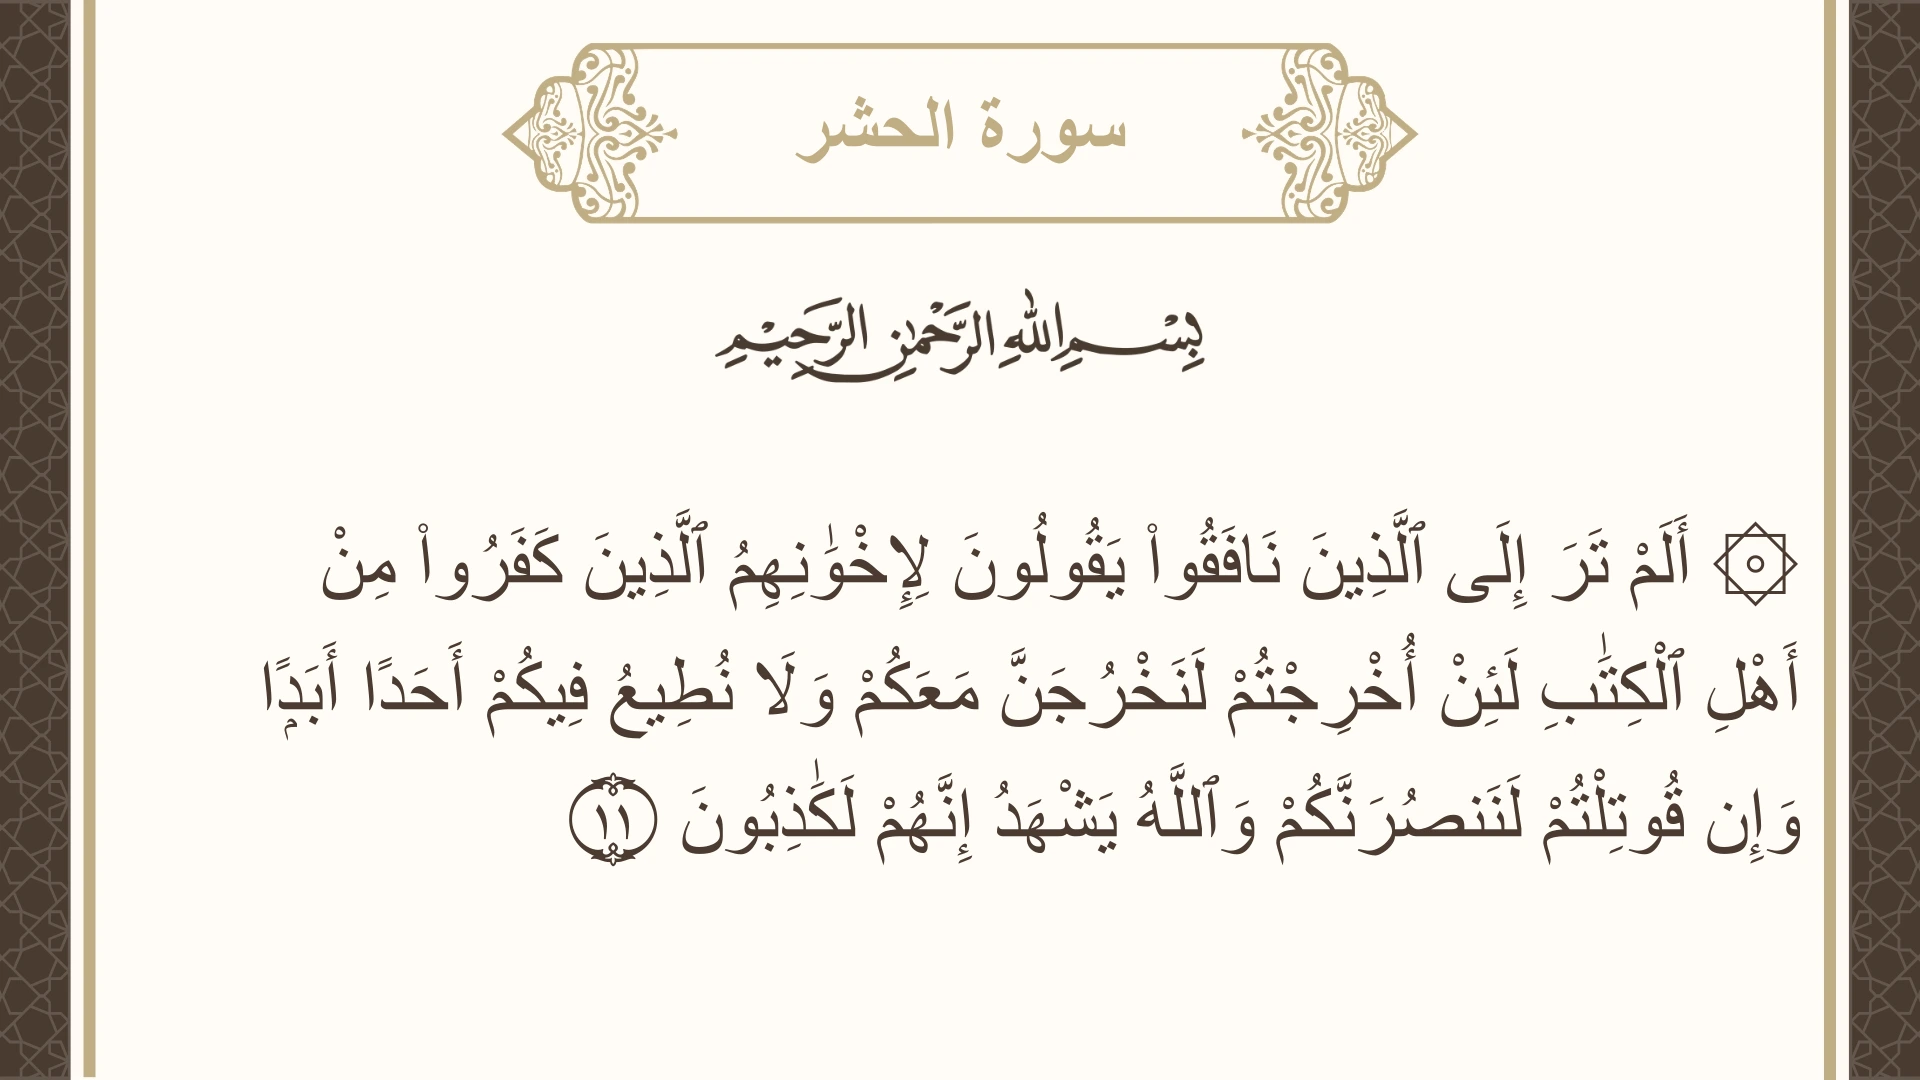 سورة الحشر
بِسْمِ اللهِ الرَّحْمٰنِ الرَّحِيْمِ
۞ أَلَمْ تَرَ إِلَى ٱلَّذِينَ نَافَقُوا۟ يَقُولُونَ لِإِخْوَٰنِهِمُ ٱلَّذِينَ كَفَرُوا۟ مِنْ
أَهْلِ ٱلْكِتَـٰبِ لَئِنْ أُخْرِجْتُمْ لَنَخْرُجَنَّ مَعَكُمْ وَلَا نُطِيعُ فِيكُمْ أَحَدًا أَبَدًۭا
وَإِن قُوتِلْتُمْ لَنَنصُرَنَّكُمْ وَٱللَّهُ يَشْهَدُ إِنَّهُمْ لَكَـٰذِبُونَ ١١